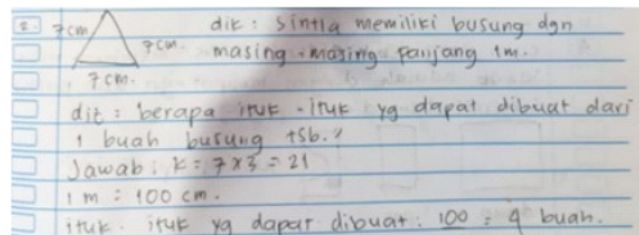 2. 7cm 7cm. dik : Sintia memiliki busung dgn
masing-masing panjang 1m.
7cm.
dit : berapa ituk-ituk yg dapat dibuat dari
1 buah busung tsb.?
Jawab : K = 7 x 3 = 21
1 m = 100 cm.
ituk-ituk yg dapat dibuat : 100 = 4 buah.